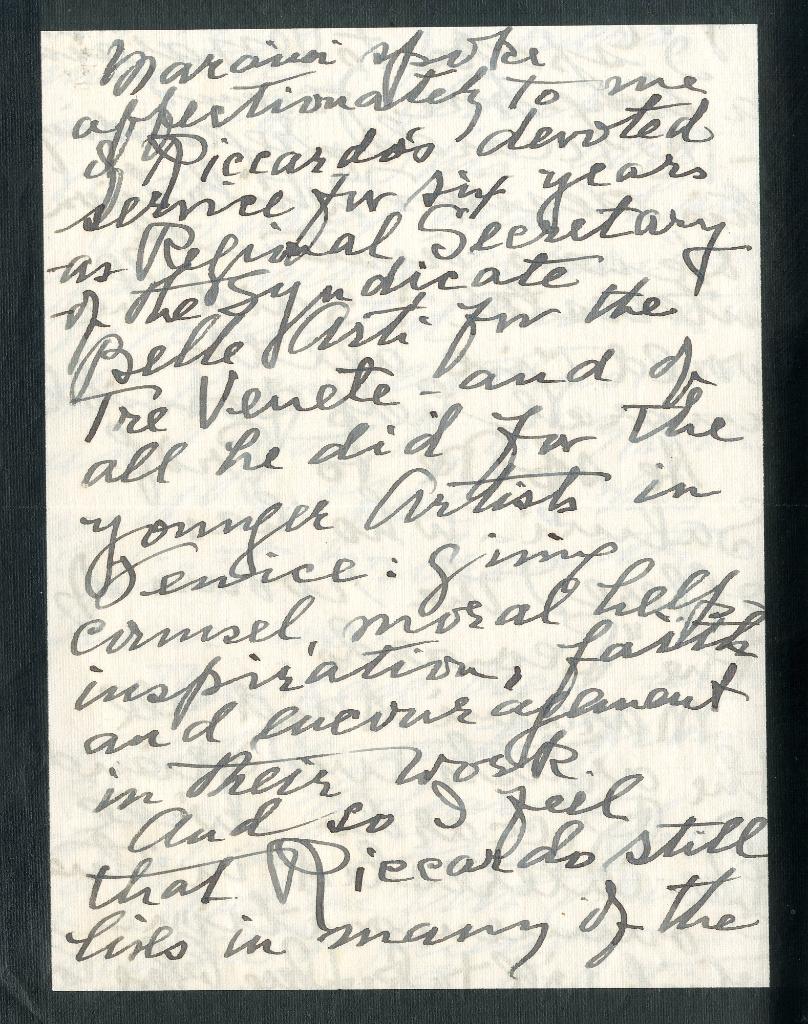 Maraini spoke
affectionately to me
of Riccardo's devoted
service for six years
as Regional Secretary
of the Syndicate
Belle Arti for the
Tre Venete - and of
all he did for the
younger Artists in
Venice: giving
counsel, moral help-
inspiration, faith
and encouragement
in their work
And so I feel
that Riccardo still
lives in many of the